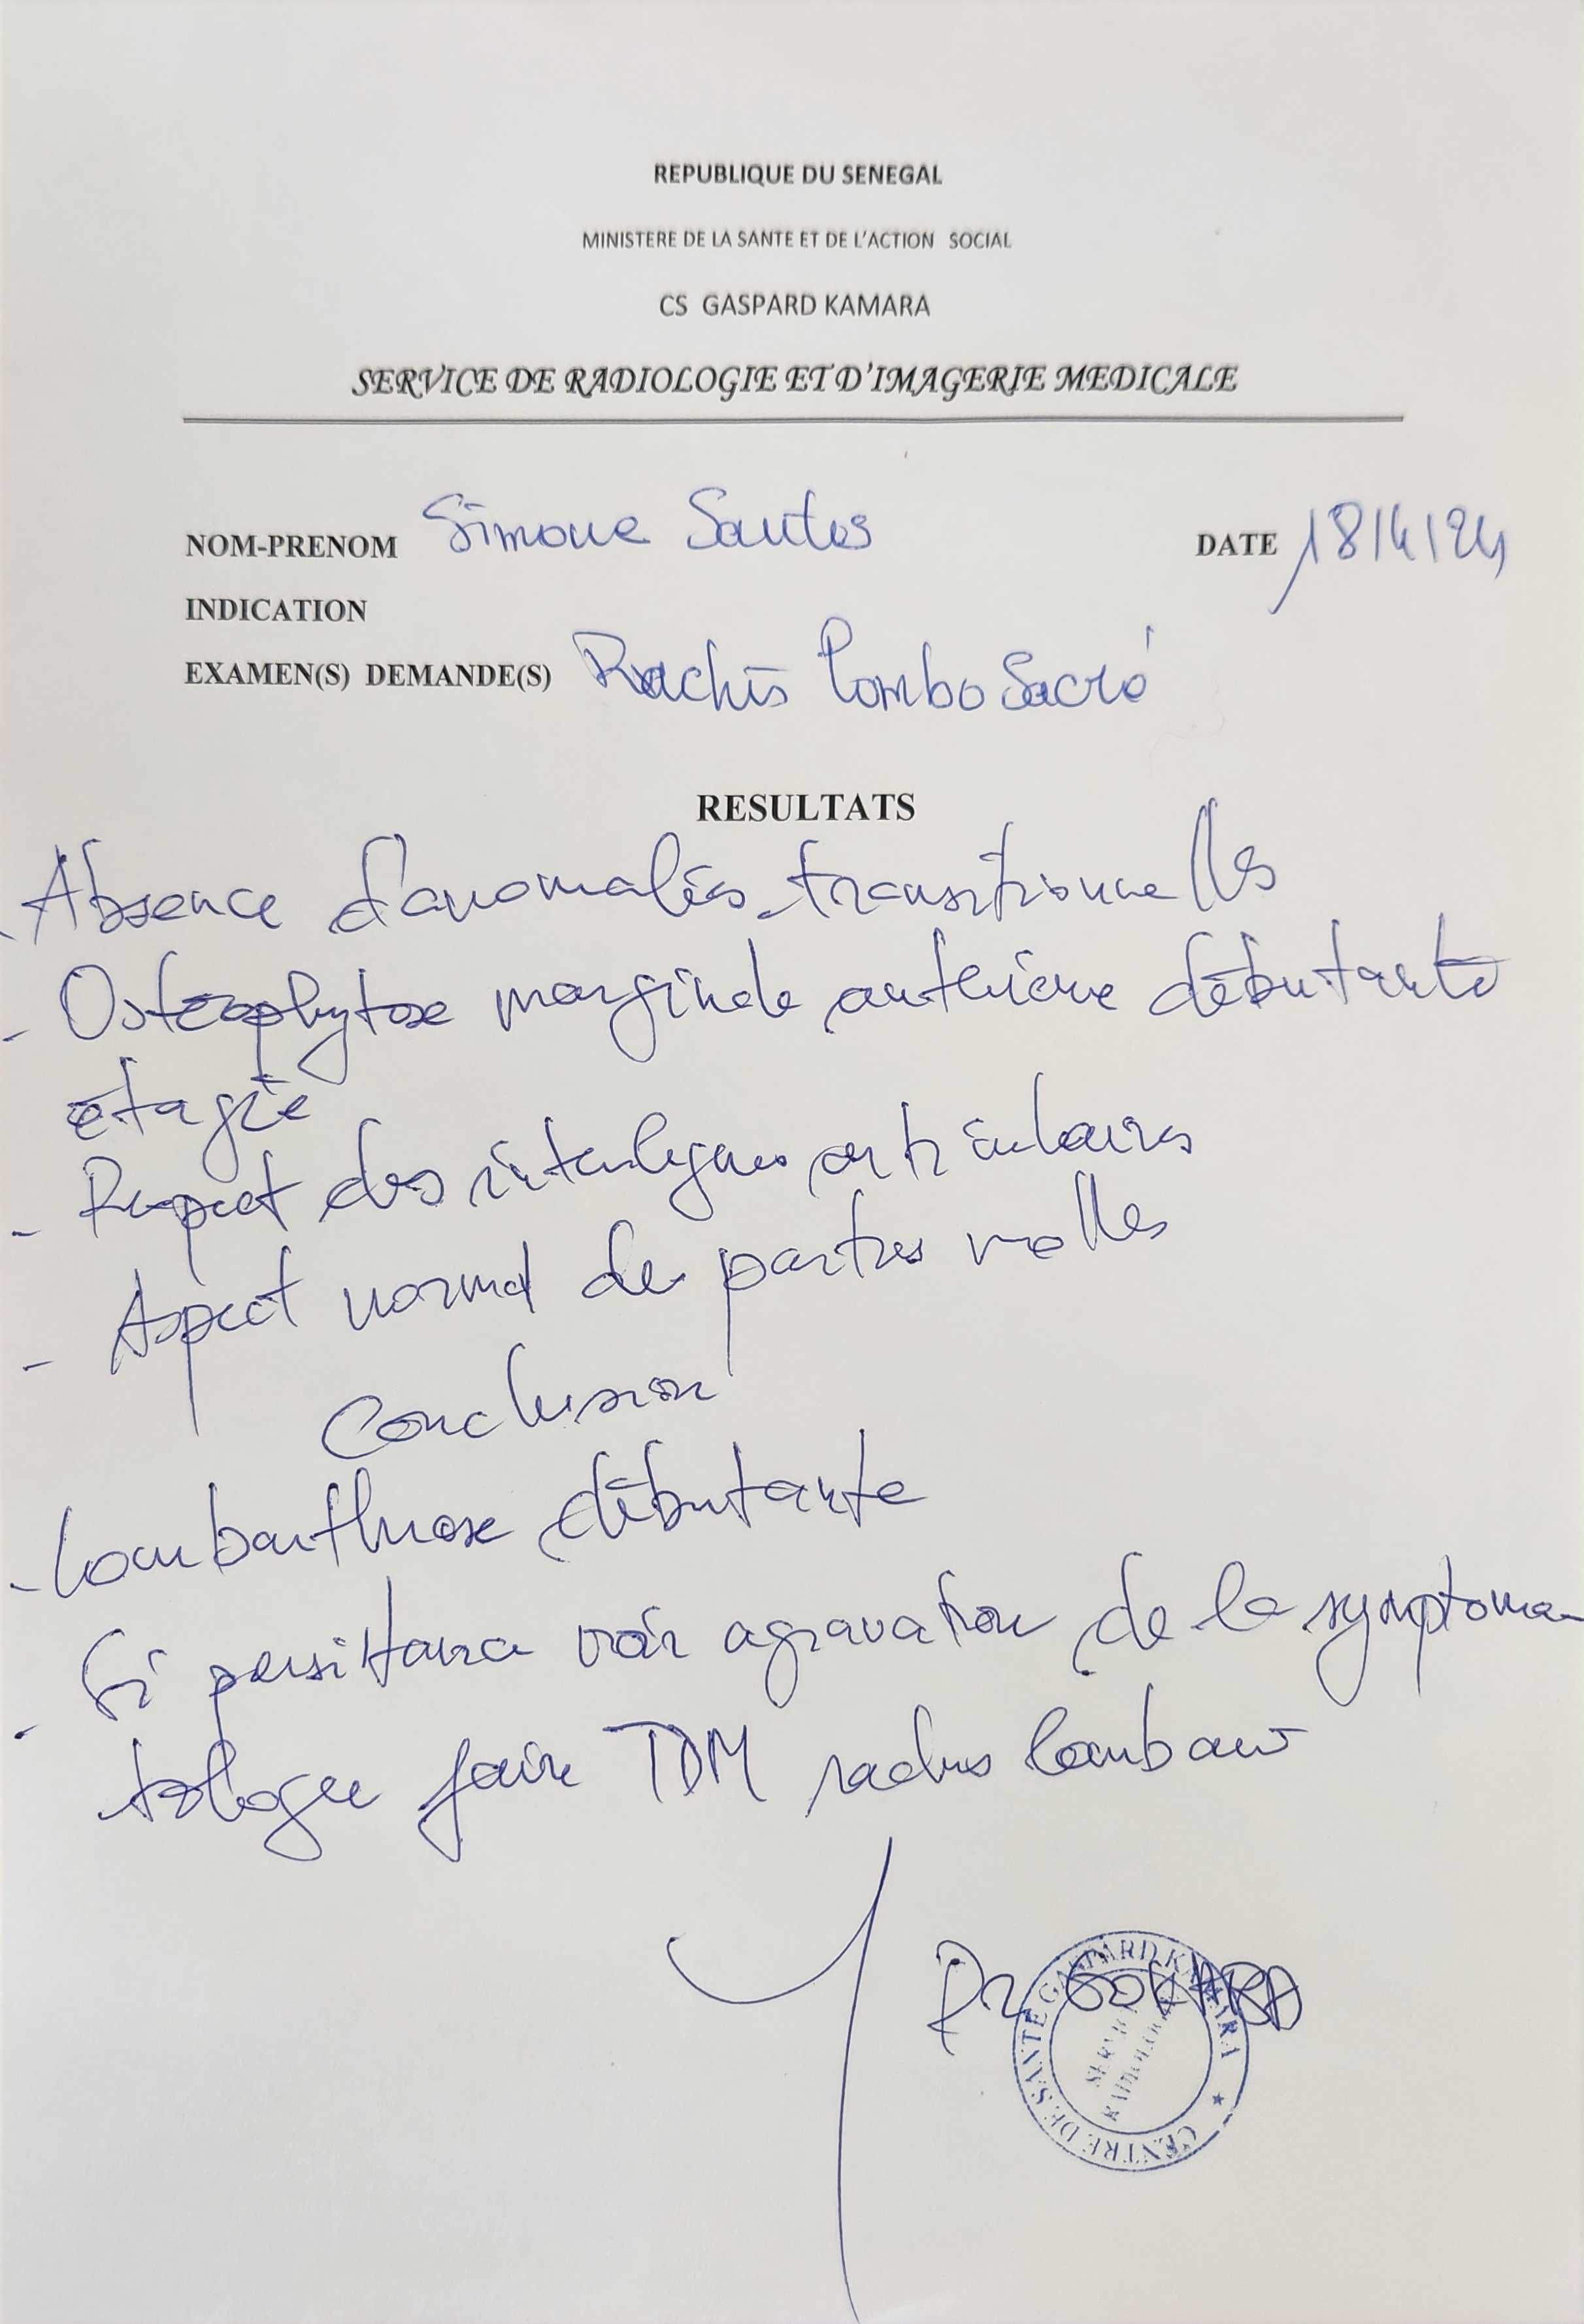 REPUBLIQUE DU SENEGAL
MINISTERE DE LA SANTE ET DE L'ACTION SOCIAL
CS GASPARD KAMARA
SERVICE DE RADIOLOGIE ET D'IMAGERIE MEDICALE
NOM-PRENOM Simone Santos DATE 18/4/24
INDICATION
EXAMEN(S) DEMANDE(S) Rachis Lombo Sacré
RESULTATS
- Absence d'anomalies transitionnelles
- Ostéophytose marginale antérieure débutante
étagée
- Respect des interlignes articulaires
- Aspect normal de parties molles
Conclusion
- Lombarthrose débutante
- Si persistance voir agravation de la symptoma-
tologie faire TDM rachis lombaire
Dr
CENTRE DE SANTE GASPARD KAMARA ★
SERVICE
RADIOLOGIE